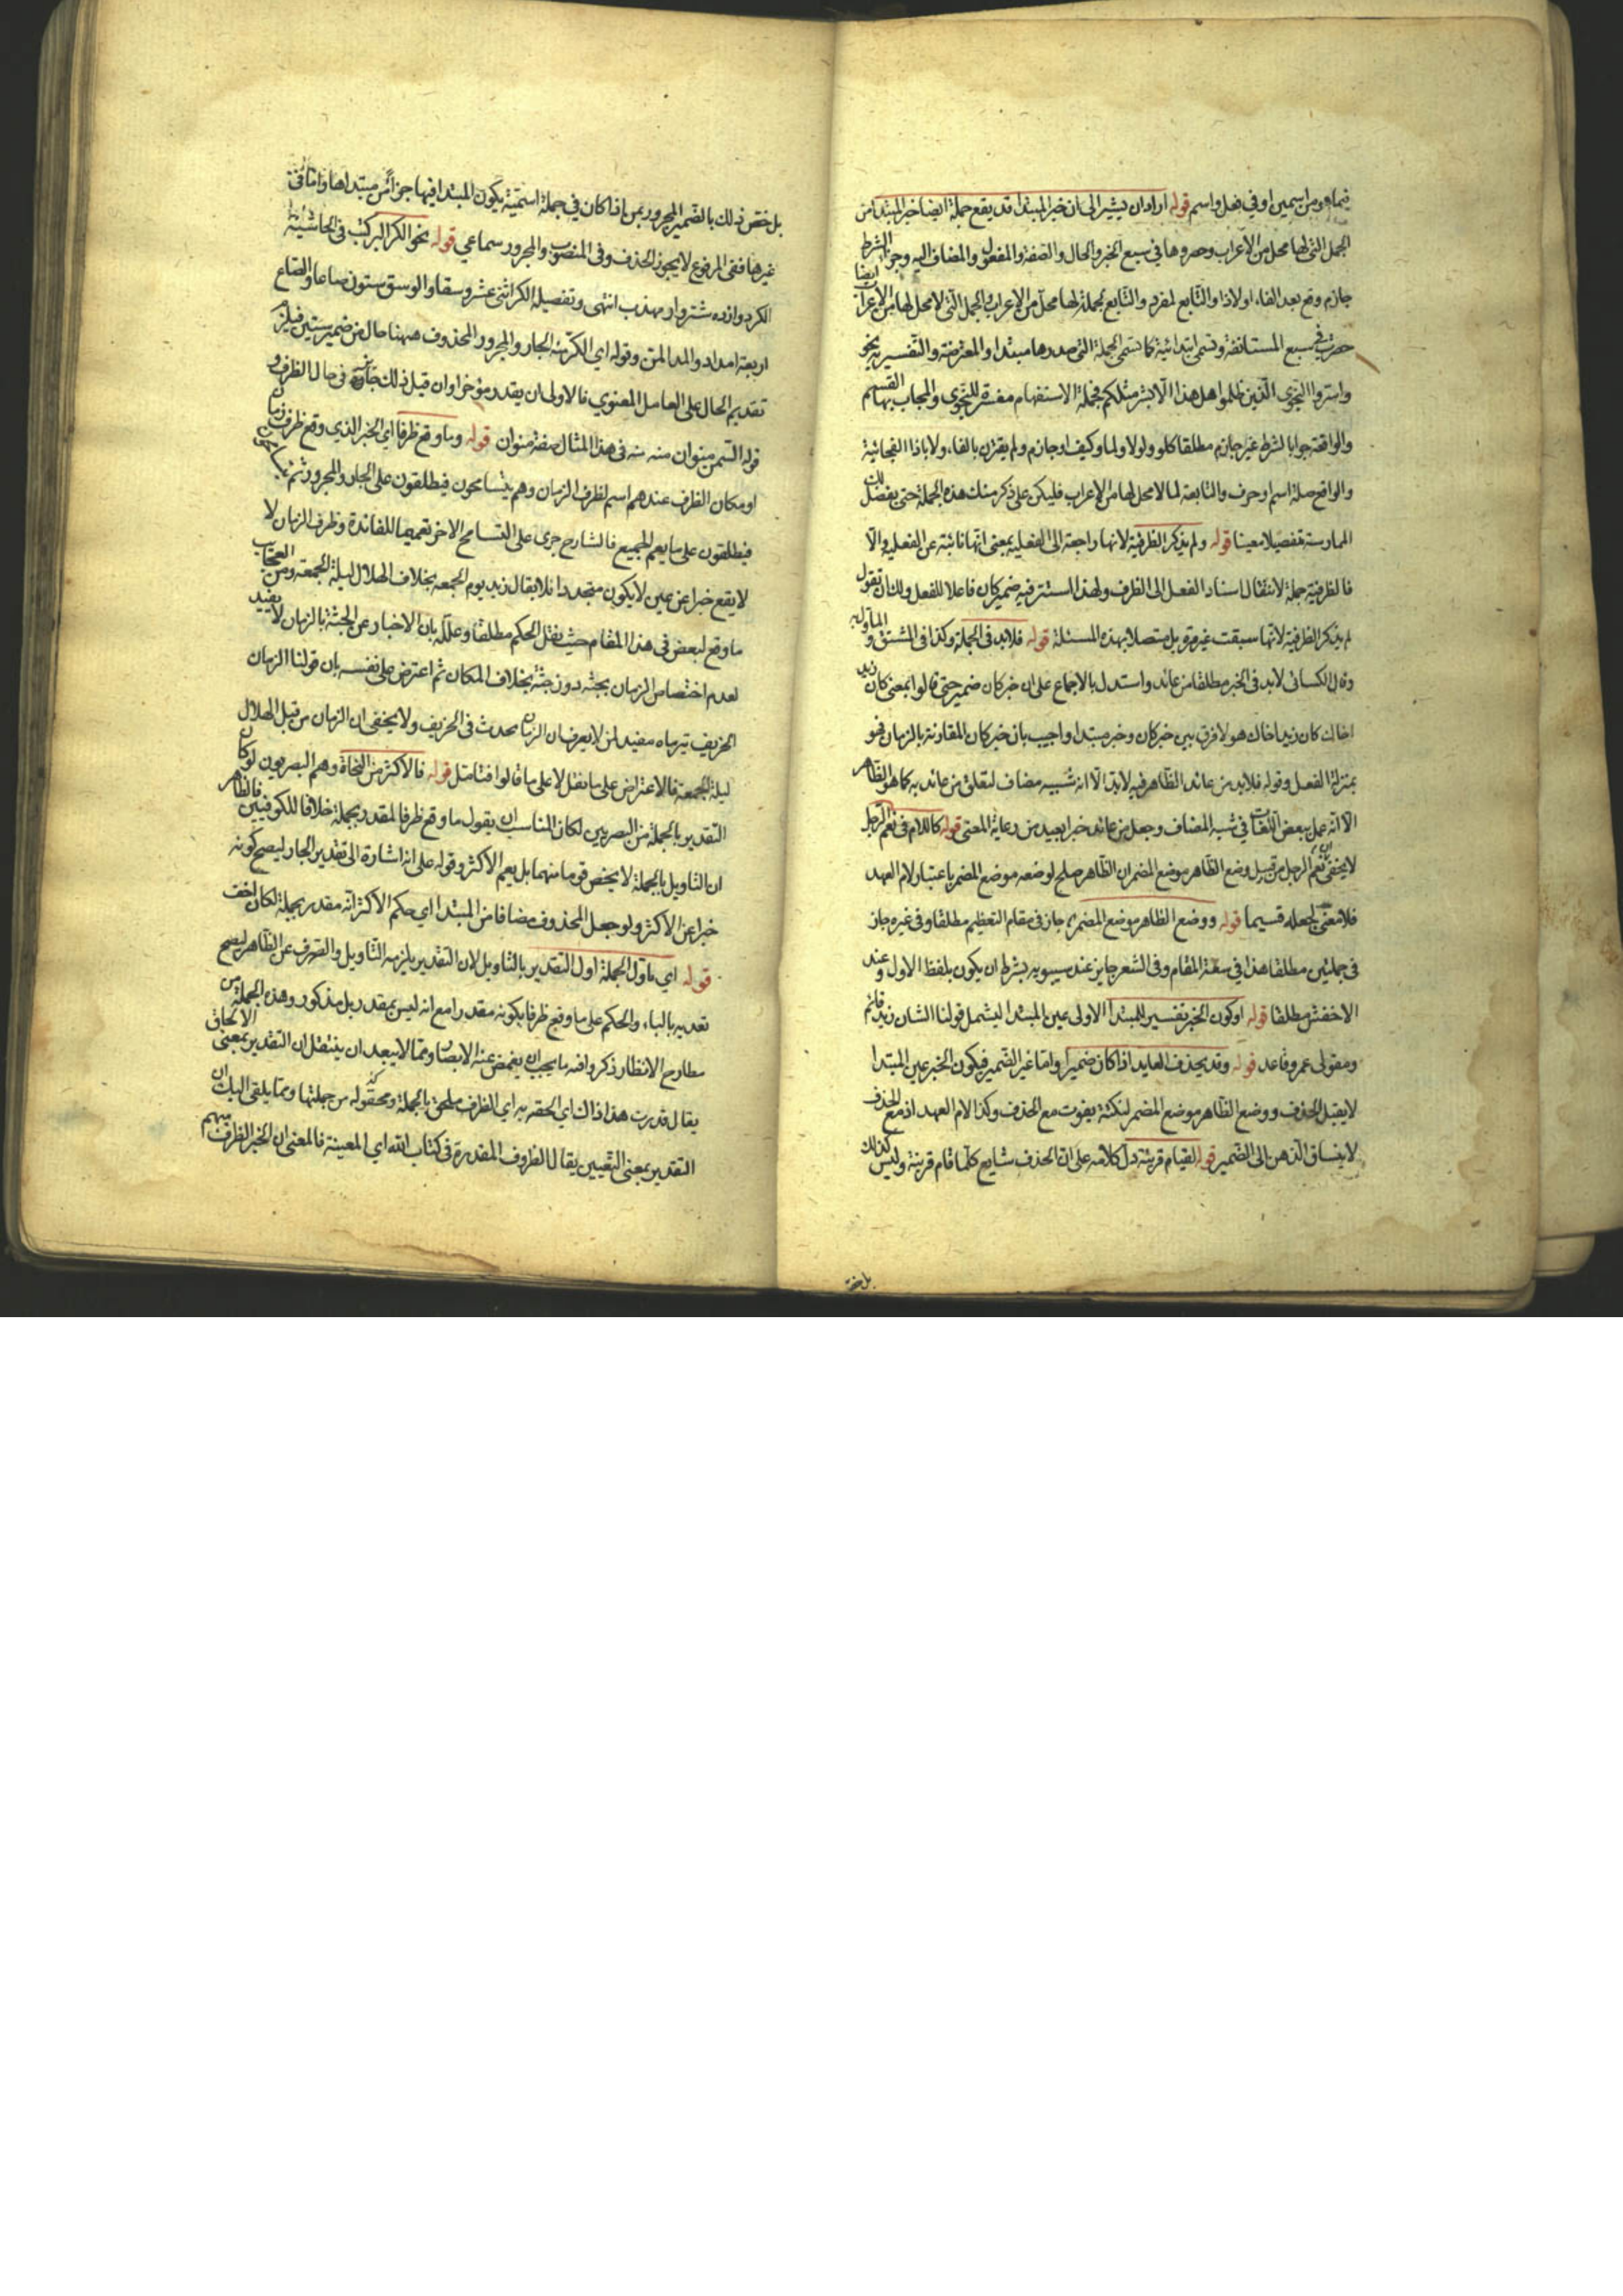 فيما هو من اسمين او في فعل واسم قوله اراد ان يشير الى ان خبر المبتدا قد يقع جملة ايضا خبر المبتدا من
الجمل التي لها محل من الاعراب وحصروها في سبع الخبر والحال والصفة والمفعول والمضاف اليه وجواب الشرط
جازم وقع بعد الفاء او لاذا والتابع لمفرد والتابع لجملة لها محل من الاعراب والجمل التي لا محل لها من الاعراب ايضا
حصرت في سبع المستانفة وتسمى ابتدائية كما تسمى الجملة التي صدرها مبتدا والمعترضة والتفسيرية نحو
واسروا النجوى الذين ظلموا هل هذا الا بشر مثلكم فجملة الاستفهام مفسرة للنجوى والمجاب بها القسم
والواقعة جوابا لشرط غير جازم مطلقا كلو ولولا ولما وكيف او جازم ولم يقترن بالفاء ولا باذا الفجائية
والواقع صلة اسم او حرف والتابعة لما لا محل لها من الاعراب فليكن على ذكر منك هذه الجملة حتى يفصل لك
الممارسة تفصيلا معينا قوله ولم يذكر الظرفية لانها راجعة الى الفعلية بمعنى انها نائبة عن الفعلية والا
فالظرفية جملة لانتقال اسناد الفعل الى الظرف ولهذا استتر فيه ضمير كان فاعلا للفعل ولك ان تقول
لم يذكر الظرفية لانها سبقت غير مرة بل متصلا بهذه المسئلة قوله فلا بد في الجملة وكذا في المشتق و الماول به
وقال الكسائي لا بد في الخبر مطلقا من عائد واستدل بالاجماع على ان خبر كان ضمير حتى قالوا بمعنى كان زيد
اخاك كان زيد اخاك هو لا فرق بين خبر كان وخبر مبتدا واجيب بان خبر كان المقارنته بالزمان فهو
بمنزلة الفعل وقوله فلا بد من عائد الظاهر فيه لا بدا الا انه شبيه مضاف لتعلق من عائد به كما هو الظاهر
الا انه عمل ببعض اللغات في شبه المضاف وجعل من عائد خبرا بعيد من رعاية المعنى قوله كاللام في نعم الرجل
لا يخفى ان نعم الرجل من قبيل وضع الظاهر موضع المضمر ان الظاهر صلح لوضعه موضع المضمر باعتبار لام العهد
فلا معنى لجعله قسيما قوله ووضع الظاهر موضع المضمر جاز في مقام التعظيم مطلقا وفي غيره جاز
في جملتين مطلقا هذا في سعة المقام وفي الشعر جايز عند سيبويه بشرط ان يكون بلفظ الاول وعند
الاخفش مطلقا قوله او كون الخبر تفسير للمبتدا الاولى عين المبتدا ليشمل قولنا الشان زيد قائم
ومقولى عمرو قاعد قوله وقد يحذف العايد اذا كان ضميرا واما غير الضمير فيكون الخبر عين المبتدا
لا يقبل الحذف ووضع الظاهر موضع المضمر لنكتة يفوت مع الحذف وكذا لام العهد اذ مع الحذف
لا ينساق الذهن الى الضمير قوله لقيام قرينة دل كلامه على ان الحذف شايع كلما قام قرينة وليس كذلك
بل خص
بل خص ذلك بالضمير المجرور بمن اذا كان في جملة اسمية يكون المبتدا فيها جزأ من مبتداها واما في
غيرها ففي المرفوع لا يجوز الحذف وفي المنصوب والمجرور سماعي قوله نحو الكر البر كتب في الحاشية
الكر دوازده شتروار مهذب انتهى وتفصيله الكر اثنى عشر وسقا والوسق ستون صاعا والصاع
اربعة امداد والمد المن وقوله اي الكر منه الجار والمجرور المحذوف ههنا حال من ضمير ستين فيلزم
تقديم الحال على العامل المعنوي فالاولى ان يقدر مؤخرا وان قيل ذلك جايز في حال الظرف و
قوله السمن منوان منه منه في هذا المثال صفة منوان قوله وما وقع ظرفا اي الخبر الذي وقع ظرف زمان
او مكان الظرف عندهم اسم لظرف الزمان وهم يتسامحون فيطلقون على الجار والمجرور ثم
فيطلقون على ما يعم الجميع فالشارح جرى على التسامح الاخر تعميما للفائدة وظرف الزمان لا
لا يقع خبرا عن عين لا يكون متجددا فلا يقال زيد يوم الجمعة بخلاف الهلال ليلة الجمعة ومن العجايب
ما وقع لبعض في هذا المقام حيث نقل الحكم مطلقا وعلله بان الاخبار عن الجثة بالزمان لا يفيد
لعدم اختصاص الزمان بجثة دون جثة بخلاف المكان ثم اعترض على نفسه بان قولنا الزمان
الخريف تيرماه مفيد لمن لا يعرف ان الزمان محدث في الخريف ولا يخفى ان الزمان من قبل الهلال
ليلة الجمعة فالاعتراض على ما نقل لا على ما قالوا فتامل قوله فالاكثر من النحاة وهم البصريون لو كان
التقدير بالجملة من البصريين لكان المناسب ان يقول ما وقع ظرفا لمقدر بجملة خلافا للكوفيين فالظاهر
ان التاويل بالجملة لا يخص قوما منهما بل يعم الاكثر وقوله على انه اشارة الى تقدير الجار ليصح كونه
خبرا عن الاكثر ولو جعل المحذوف مضافا من المبتدا اي حكم الاكثر انه مقدر بجملة لكان اخف
قوله اي ماول الجملة اول التقدير بالتاويل لان التقدير يلزمه التاويل والصرف عن الظاهر ليصح
تعديه بالباء والحكم على ما وقع ظرفا بكونه مقدرا مع انه ليس بمقدر بل مذكور وهذه الجملة من
مطارح الانظار ذكروا فيه ما يجب ان يغمض عنه الابصار ومما لا يبعد ان ينتقل ان التقدير بمعنى الالحاق
يقال قدرت هذا اذاك اي الحقه به اي الظرف ملحق بالجملة ومحقوله من جملتها ومما يلقى اليك ان
التقدير بمعنى التعيين يقال الظروف المقدرة في كتاب الله اي المعينة فالمعنى ان الخبر الظرف مبهم